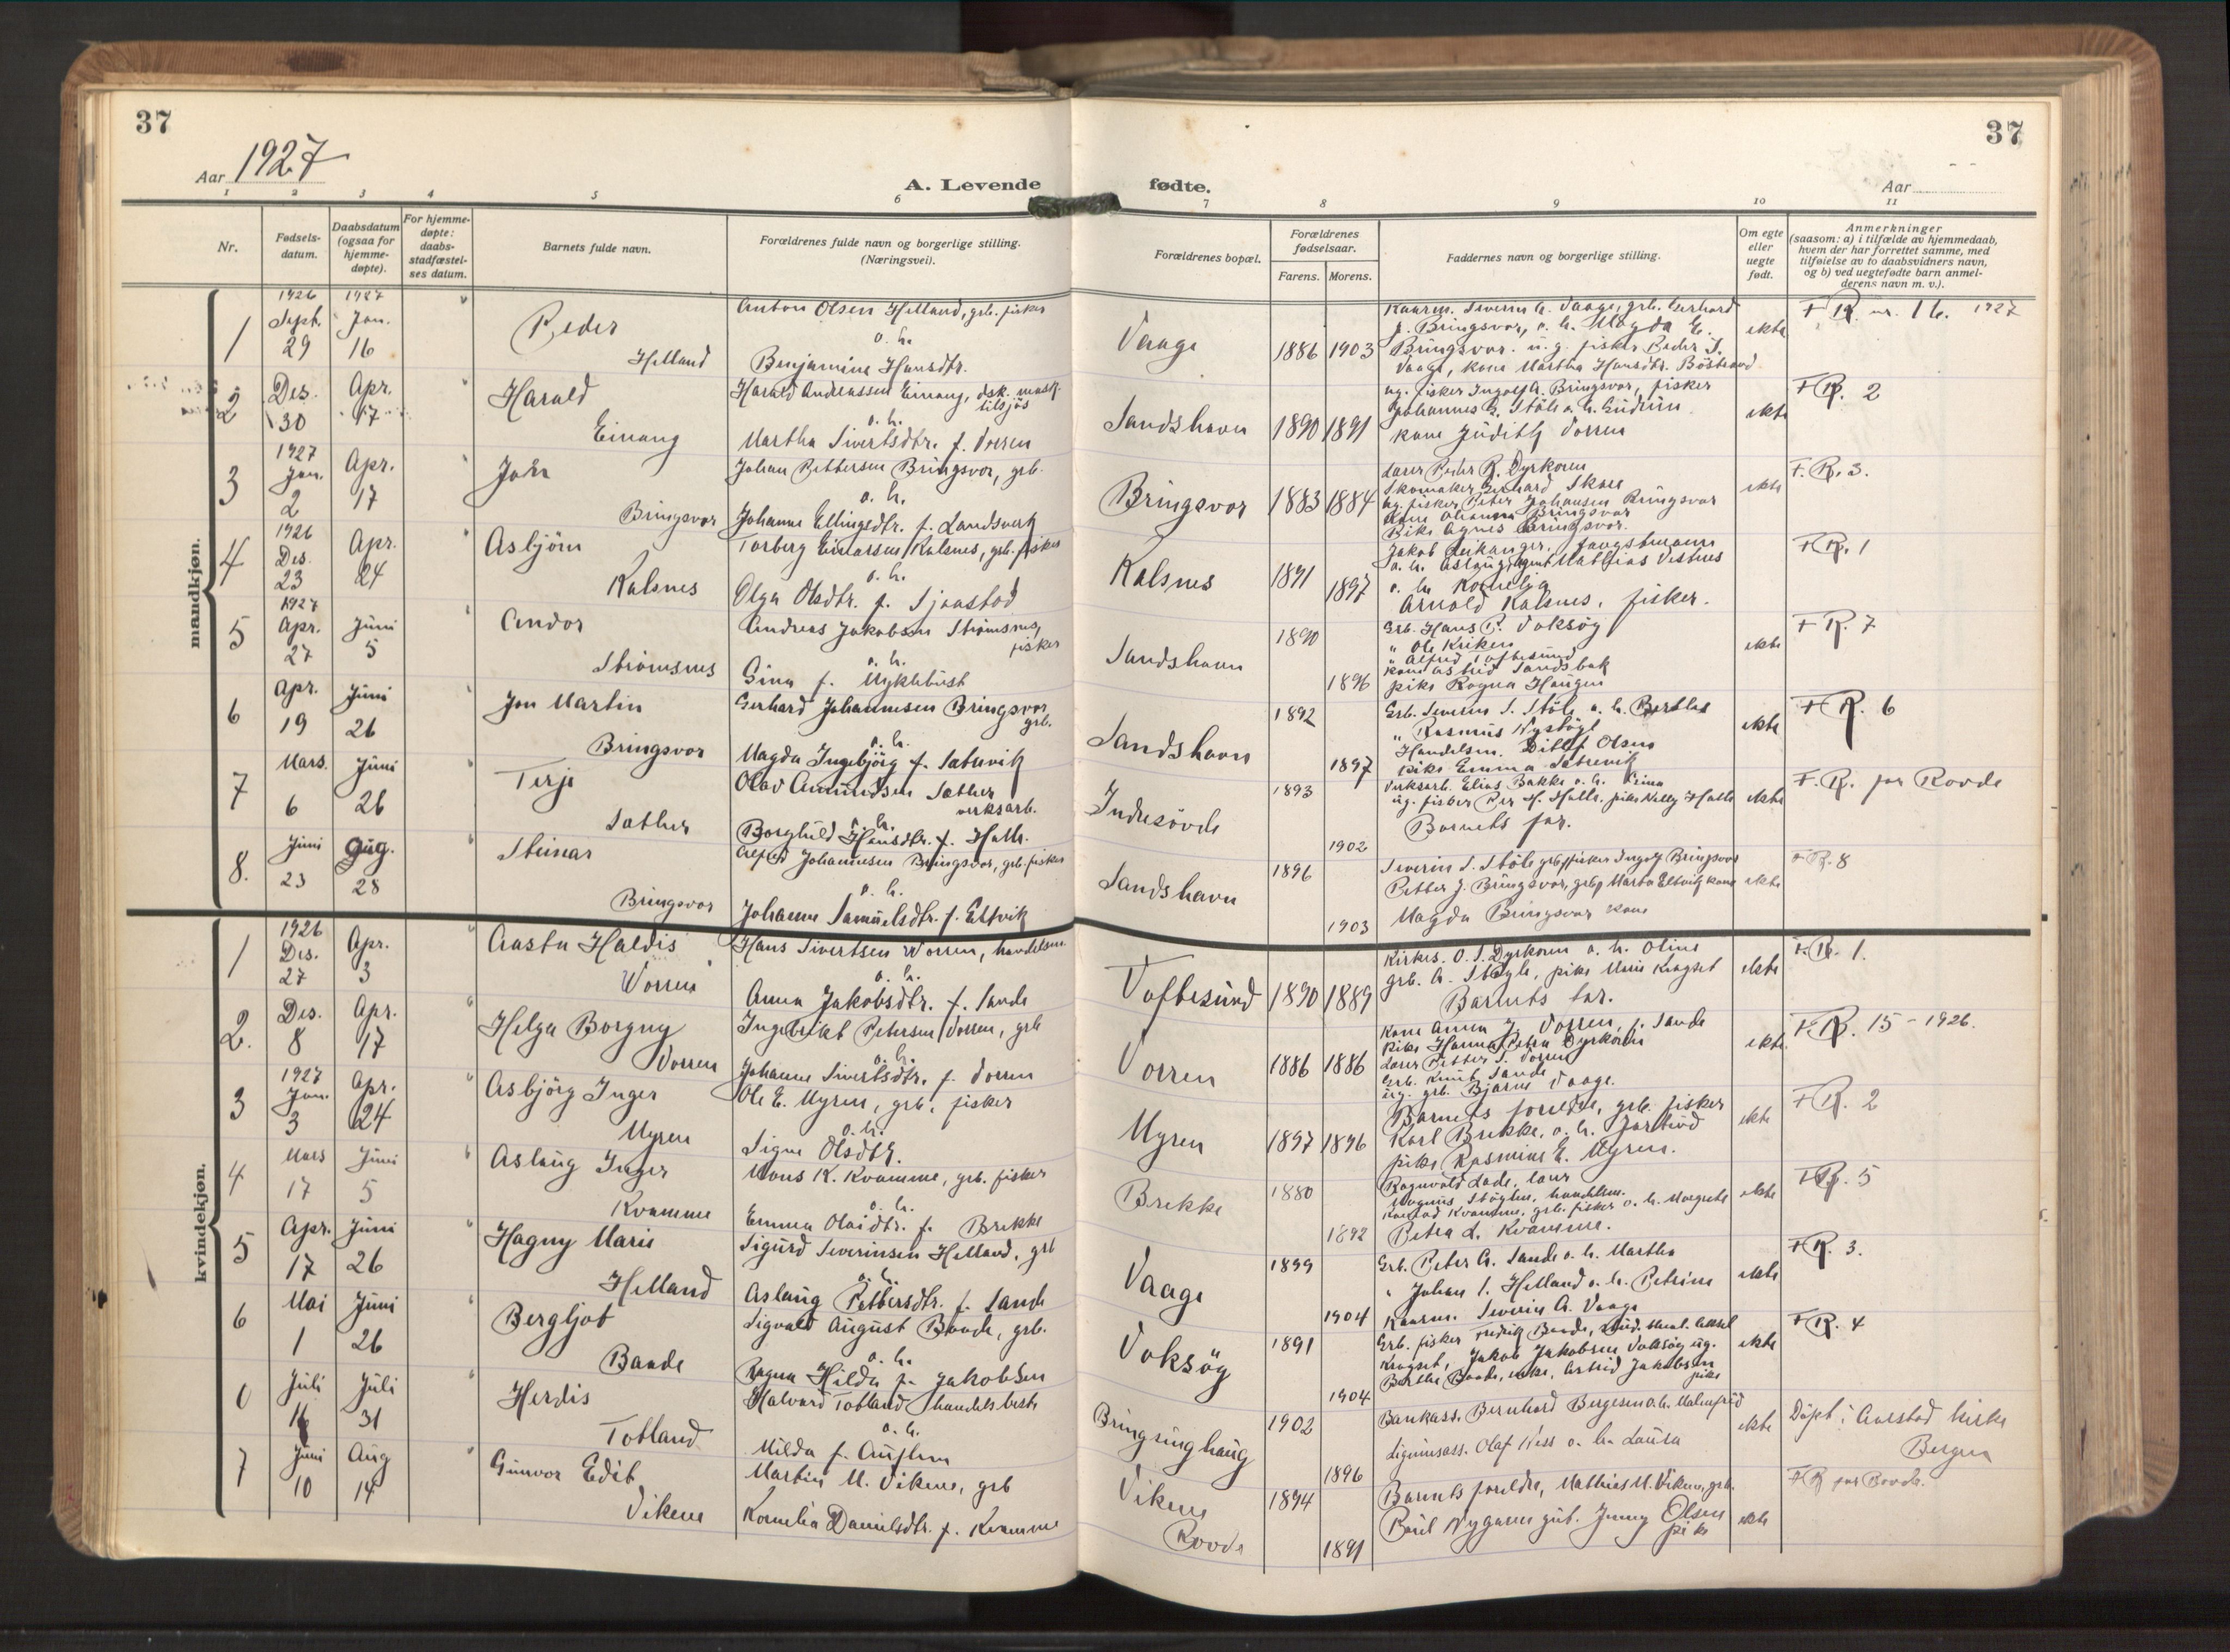 37
37
Aar 1927
A. Levende fødte.
Aar
1 2 3 4 5 6 7 8 9 10 11
Nr.
Fødsels-
datum.
Daabsdatum
(ogsaa for
hjemme-
døpte).
For hjemme-
døpte:
daabs-
stadfæstel-
ses datum.
Barnets fulde navn.
Forældrenes fulde navn og borgerlige stilling.
(Næringsvei).
Forældrenes bopæl.
Forældrenes
fødselsaar.
Farens. Morens.
Faddernes navn og borgerlige stilling.
Om egte
eller
uegte
født.
Anmerkninger
(saasom: a) i tilfælde av hjemmedaab,
hvem der har forrettet samme, med
tilføielse av to daabsvidners navn,
og b) ved uegtefødte barn anmel-
derens navn m. v.).
mandkjøn.
1 1926 Sept. 29 1927 Jan. 16 Peder Helland
Anton Olsen Helland, grb. fisker
o. h.
Benjamine Hansdtr.
Vaage 1886 1903
Kaarm. Severin A. Vaage, grb. Gerhard
J. Bringsvor, o. h. Magda E.
Bringsvor. u.g. fisker Peder S.
Vaage, kone Martha Hansdtr. Böstrand
ekte
F R. nr. 16. 1927
2 Des. 30 Apr. 17 Harald Einang
Harald Andreassen Einang, dsk. mask.
tilsjös
o. h.
Martha Sivertsdtr. f. Vorren
Sandshavn 1890 1891
ug. fisker Ingolf A. Bringsvor, fisker
Johannes G. Støle o. h. Gudrun
kone Judith Vorren
ekte
F R. 2
3 1927 Jan. 2 Apr. 17 John Bringsvor
Johan Pettersen Bringsvor, grb.
o. h.
Johanne Ellingsdtr. f. Landsverk
Bringsvor 1883 1884
Lærer Peder R. Dyrkoren
Skomaker Gerhard Skare
ug. fisker Peter Johansen Bringsvor
Kone Johanna Bringsvor
Pike Agnes Bringsvor.
ekte
F. R. 3.
4 1926 Des. 23 Apr. 24 Asbjörn Kalsnes
Torberg Einarsen Kalsnes, grb. fisker
o. h.
Olga Olsdtr. f. Sjaastad
Kalsnes 1891 1897
Jakob Leikanger,
o. h. Aslaug, agent Mathias Vestnes
o. h. Kornelja
Arnold Kalsnes, fisker.
F R. 1
5 1927 Apr. 27 Juni 5 Andor Strömsnes
Andreas Jakobsen Strömsnes,
fisker
o. h.
Gina f. Myklebust
Sandshavn 1890 1896
Grb. Hans P. Voksöy
" Ole Kriken
" Alfred Toftesund
kone Astrid Sandsbak
pike Ragna Haugen
ekte
F R. 7
6 Apr. 19 Juni 26 Jon Martin Bringsvor
Gerhard Johannesen Bringsvor
grb.
o. h.
Magda Ingebjörg f. Sætrevik
Sandshavn 1892 1897
Grb. Severin S. Støle o. h. Berthe
" Rasmus Nystøyl
Handelsm. Ditlef Olsen
pike Emma Sætrevik
ekte
F R. 6
7 Mars. 6 Juni 26 Terje Sæther
Olav Amundsen Sæther
verksarb.
o. h.
Borghild Hansdtr. f. Halle.
Indresövde 1893 1902
Verksarb. Elias Bakke o. h. Stina
ug. fisker Per H. Halle, pike Nelly Halle
Barnets far.
ekte
F. R. for Rovde
8. Juni 23 Aug. 28 Steinar Bringsvor
Alfred Johannesen Bringsvor, grb. fisker
o. h.
Johanne Samuelsdtr. f. Eltvik
Sandshavn 1896 1903
Severin S. Støle grb, fisker Ingolf Bringsvor
Petter J. Bringsvor, grb, Marta Eltvik kone
Magda Bringsvor kone
ekte
F R. 8
kvindekjøn.
1 1926 Des. 27 Apr. 3 Aasta Haldis Vorren
Hans Sivertsen Vorren, handelsm.
o. h.
Anna Jakobsdtr. f. Sande
Toftesund 1890 1889
Kirkes. O. S. Dyrkoren o. h. Oline
grb. A. Støyle, pike Marie Kragset
Barnets far.
ekte
F. R. 1.
2. Des. 8 Apr. 17 Helga Borgny Vorren
Ingebrikt Petersen Vorren, grb
o. h.
Johanne Sivertsdtr. f. Vorren
Vorren 1886 1886
Kone Anna J. Vorren, f. Sande
Pike Hanna Petra Dyrkoren
Lærer Petter S. Vorren
Grb. Knut Sande
ug. grb. Bjarne Vaage.
ekte
F. R. 15 - 1926.
3 1927 Jan. 3 Apr. 24 Asbjörg Inger Myren
Ole E. Myren, grb. fisker
o. h.
Signe Olsdtr.
Myren 1897 1896
Barnets foreldre, grb. fisker
Karl Brekke, o. h. Jarthrud
pike Rasmine E. Myren.
ekte
F R. 2
4 Mars 17 Juni 5 Aslaug Inger Kvamme
Mons K. Kvamme, grb. fisker
o. h.
Emma Olaidtr. f. Brekke
Brekke 1880 1892
Ragnvald Lade, lærer
Magnus Støylen, handelsm.
Konrad Kvamme, grb. fisker o. h. Margrete
Petra L. Kvamme.
ekte
F R. 5
5 Apr. 17 Juni 26 Hagny Marie Helland
Sigurd Severinsen Helland, grb
o. h.
Aslaug Pettersdtr. f. Sande
Vaage 1899 1904
Grb. Peter A. Sande o. h. Martha
" Johan S. Helland o. h. Petrine
Kaarm. Severin A. Vaage
ekte
F R. 3.
6 Mai 1 Juni 26 Bergljot Baade
Sigvald August Baade, grb.
o. h.
Ragna Hilda f. Jakobsen
Voksöy 1891 1904
Grb. fisker Fredrik Baade, Aksel
Kragset, Jakob Jakobsen Voksöy ug.
Berthe Baade, enke, Astrid Jakobsen
pike
ekte
F R. 4
0 Juli 16 Juli 31 Herdis Totland
Halvard Totland handelsbest.
o. h.
Milda f. Aufleen
Bringsinghaug 1902 1896
Bankass. Bernhard Bergesen o. h. Malmfrid
Ligningsass. Olaf Hess o. h. Laura
ekte
Döpt i Aarstad kirke
Bergen
7 Juni 10 Aug 14 Gunvor Edit Vikene
Martin M. Vikene, grb
Kornelia Danielsdtr. f. Kvamme
Vikene
Rovde 1894 1891
Barnets foreldre, Mathias M. Vikene, grb.
Paul Nygaren gut. Jenny Olsen
pike
ekte
F R for Rovde.